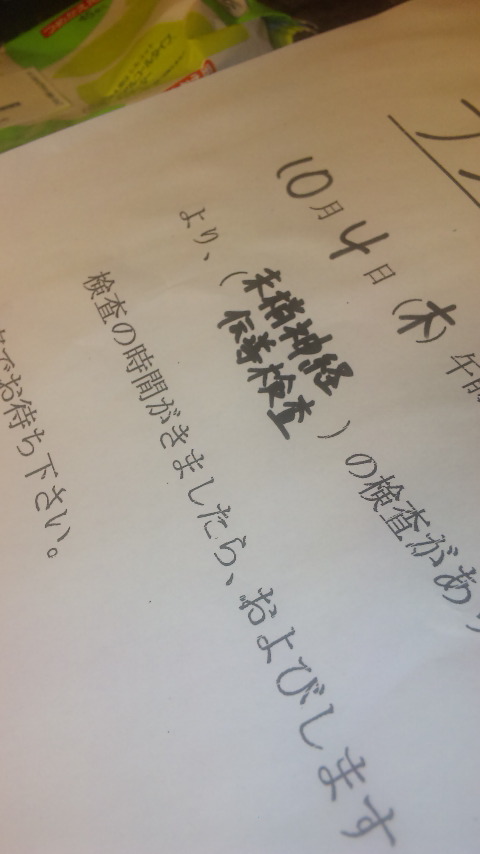 10月4日(木)午前
より、(末梢神経
伝導検査)の検査があ
検査の時間がきましたら、およびします
でお待ち下さい。